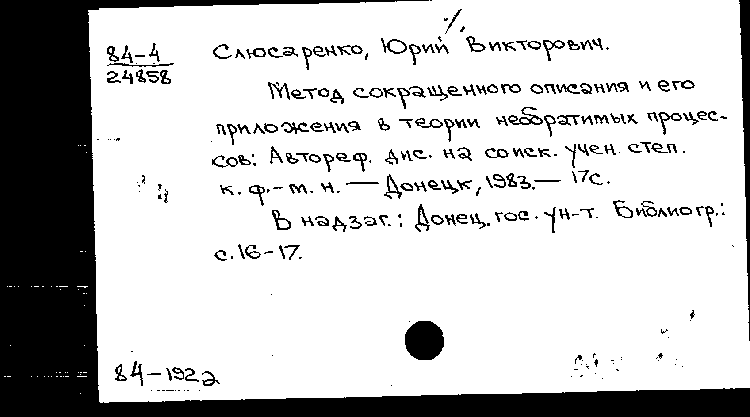 84-4
24858
Слюсаренко, Юрий Викторович.
Метод сокращенного описания и его
приложения в теории необратимых процес-
сов: Автореф. дис. на соиск. учен. степ.
к. ф.-м. н. — Донецк, 1983. — 17с.
В надзаг.: Донец. гос. ун-т. Библиогр.:
с. 16-17.
84-1922